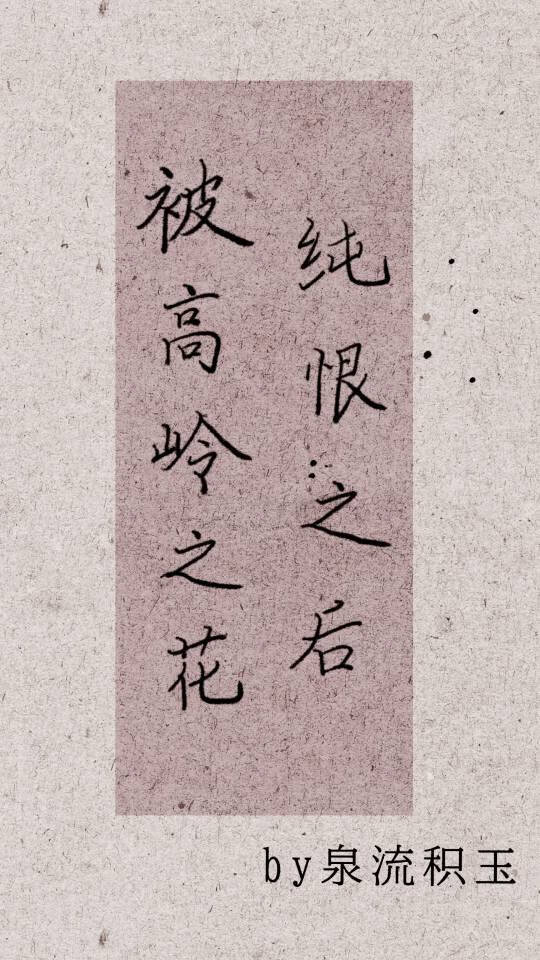 被高岭之花
纯恨之后
by泉流积玉